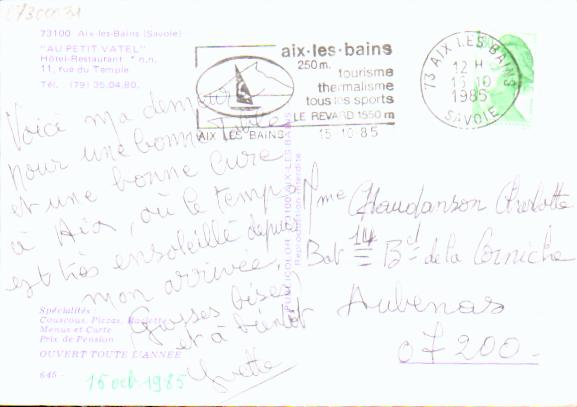 07300031
73100 Aix-les-Bains (Savoie)
"AU PETIT VATEL"
Hôtel-Restaurant * n.n.
11, rue du Temple
Tél. : (79) 35.04.80.
aix·les·bains
250m. tourisme
thermalisme
tous les sports
LE REVARD 1550 m
AIX LES BAINS 15.10.85
73 AIX LES BAINS
12 H
15 10
1985
SAVOIE
Voici ma demeure
pour une bonne table
et une bonne cure
à Aix, où le temps
est très ensoleillé depuis
mon arrivée.
Grosses bises
et à bientôt
Yvette
PUBLICOLOR 73100 AIX-LES-BAINS
Reproduction interdite
Mme Chaudanson Charlotte
Bat 14 Bd de la Corniche
Aubenas
07200
Spécialités :
Couscous, Pizzas, Raclettes
Menus et Carte
Prix de Pension
OUVERT TOUTE L'ANNÉE
645 -
15 oct 1985